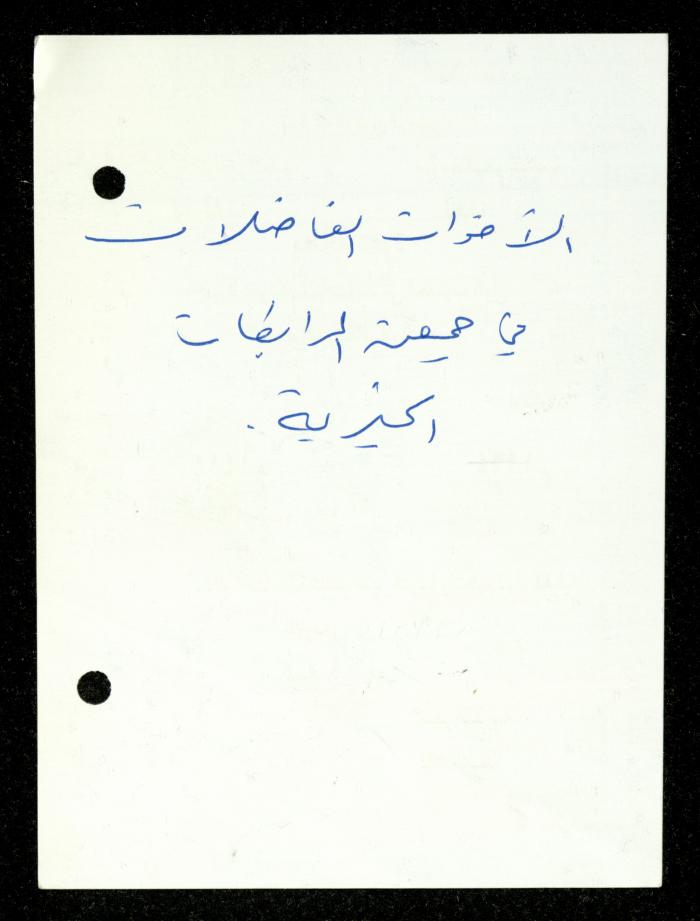 الأخوات الفاضلات
في جمعية المرابطات
الخيرية .